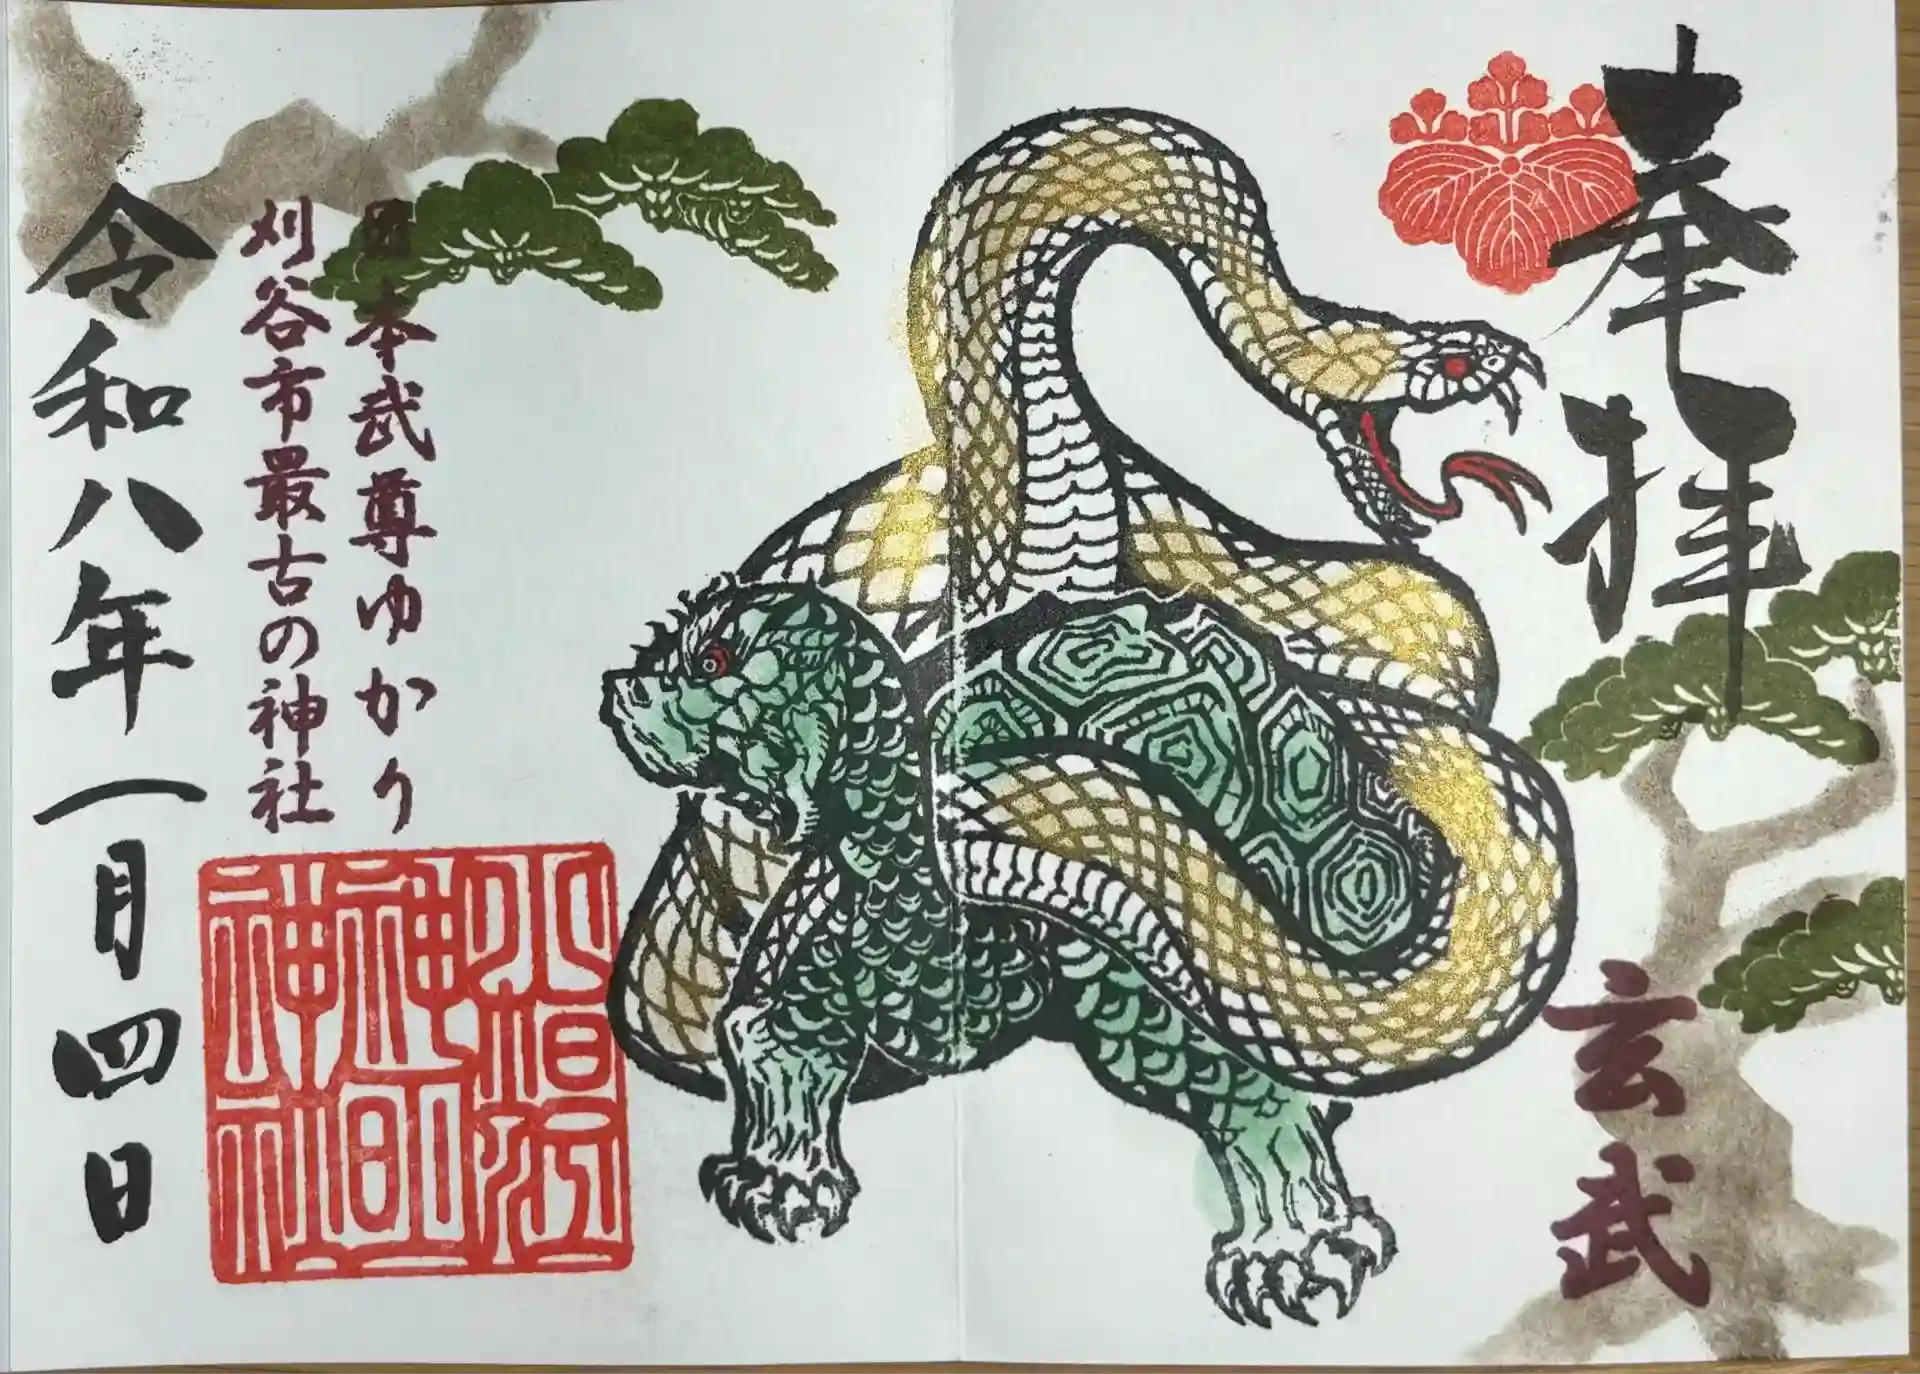 奉拝
玄武
日本武尊ゆかり
刈谷市最古の神社
令和八年一月四日